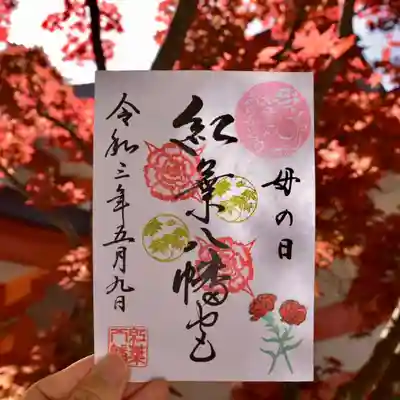 母の日
紅葉八幡宮
令和三年五月九日